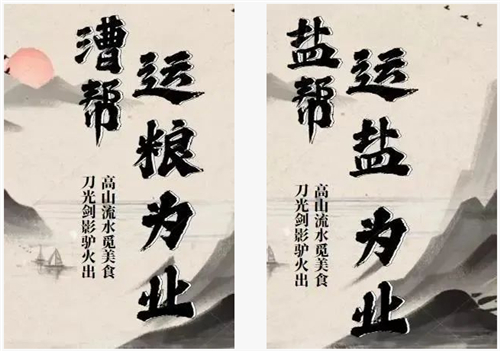 漕帮
运粮为业
高山流水觅美食
刀光剑影驴火出
盐帮
运盐为业
高山流水觅美食
刀光剑影驴火出